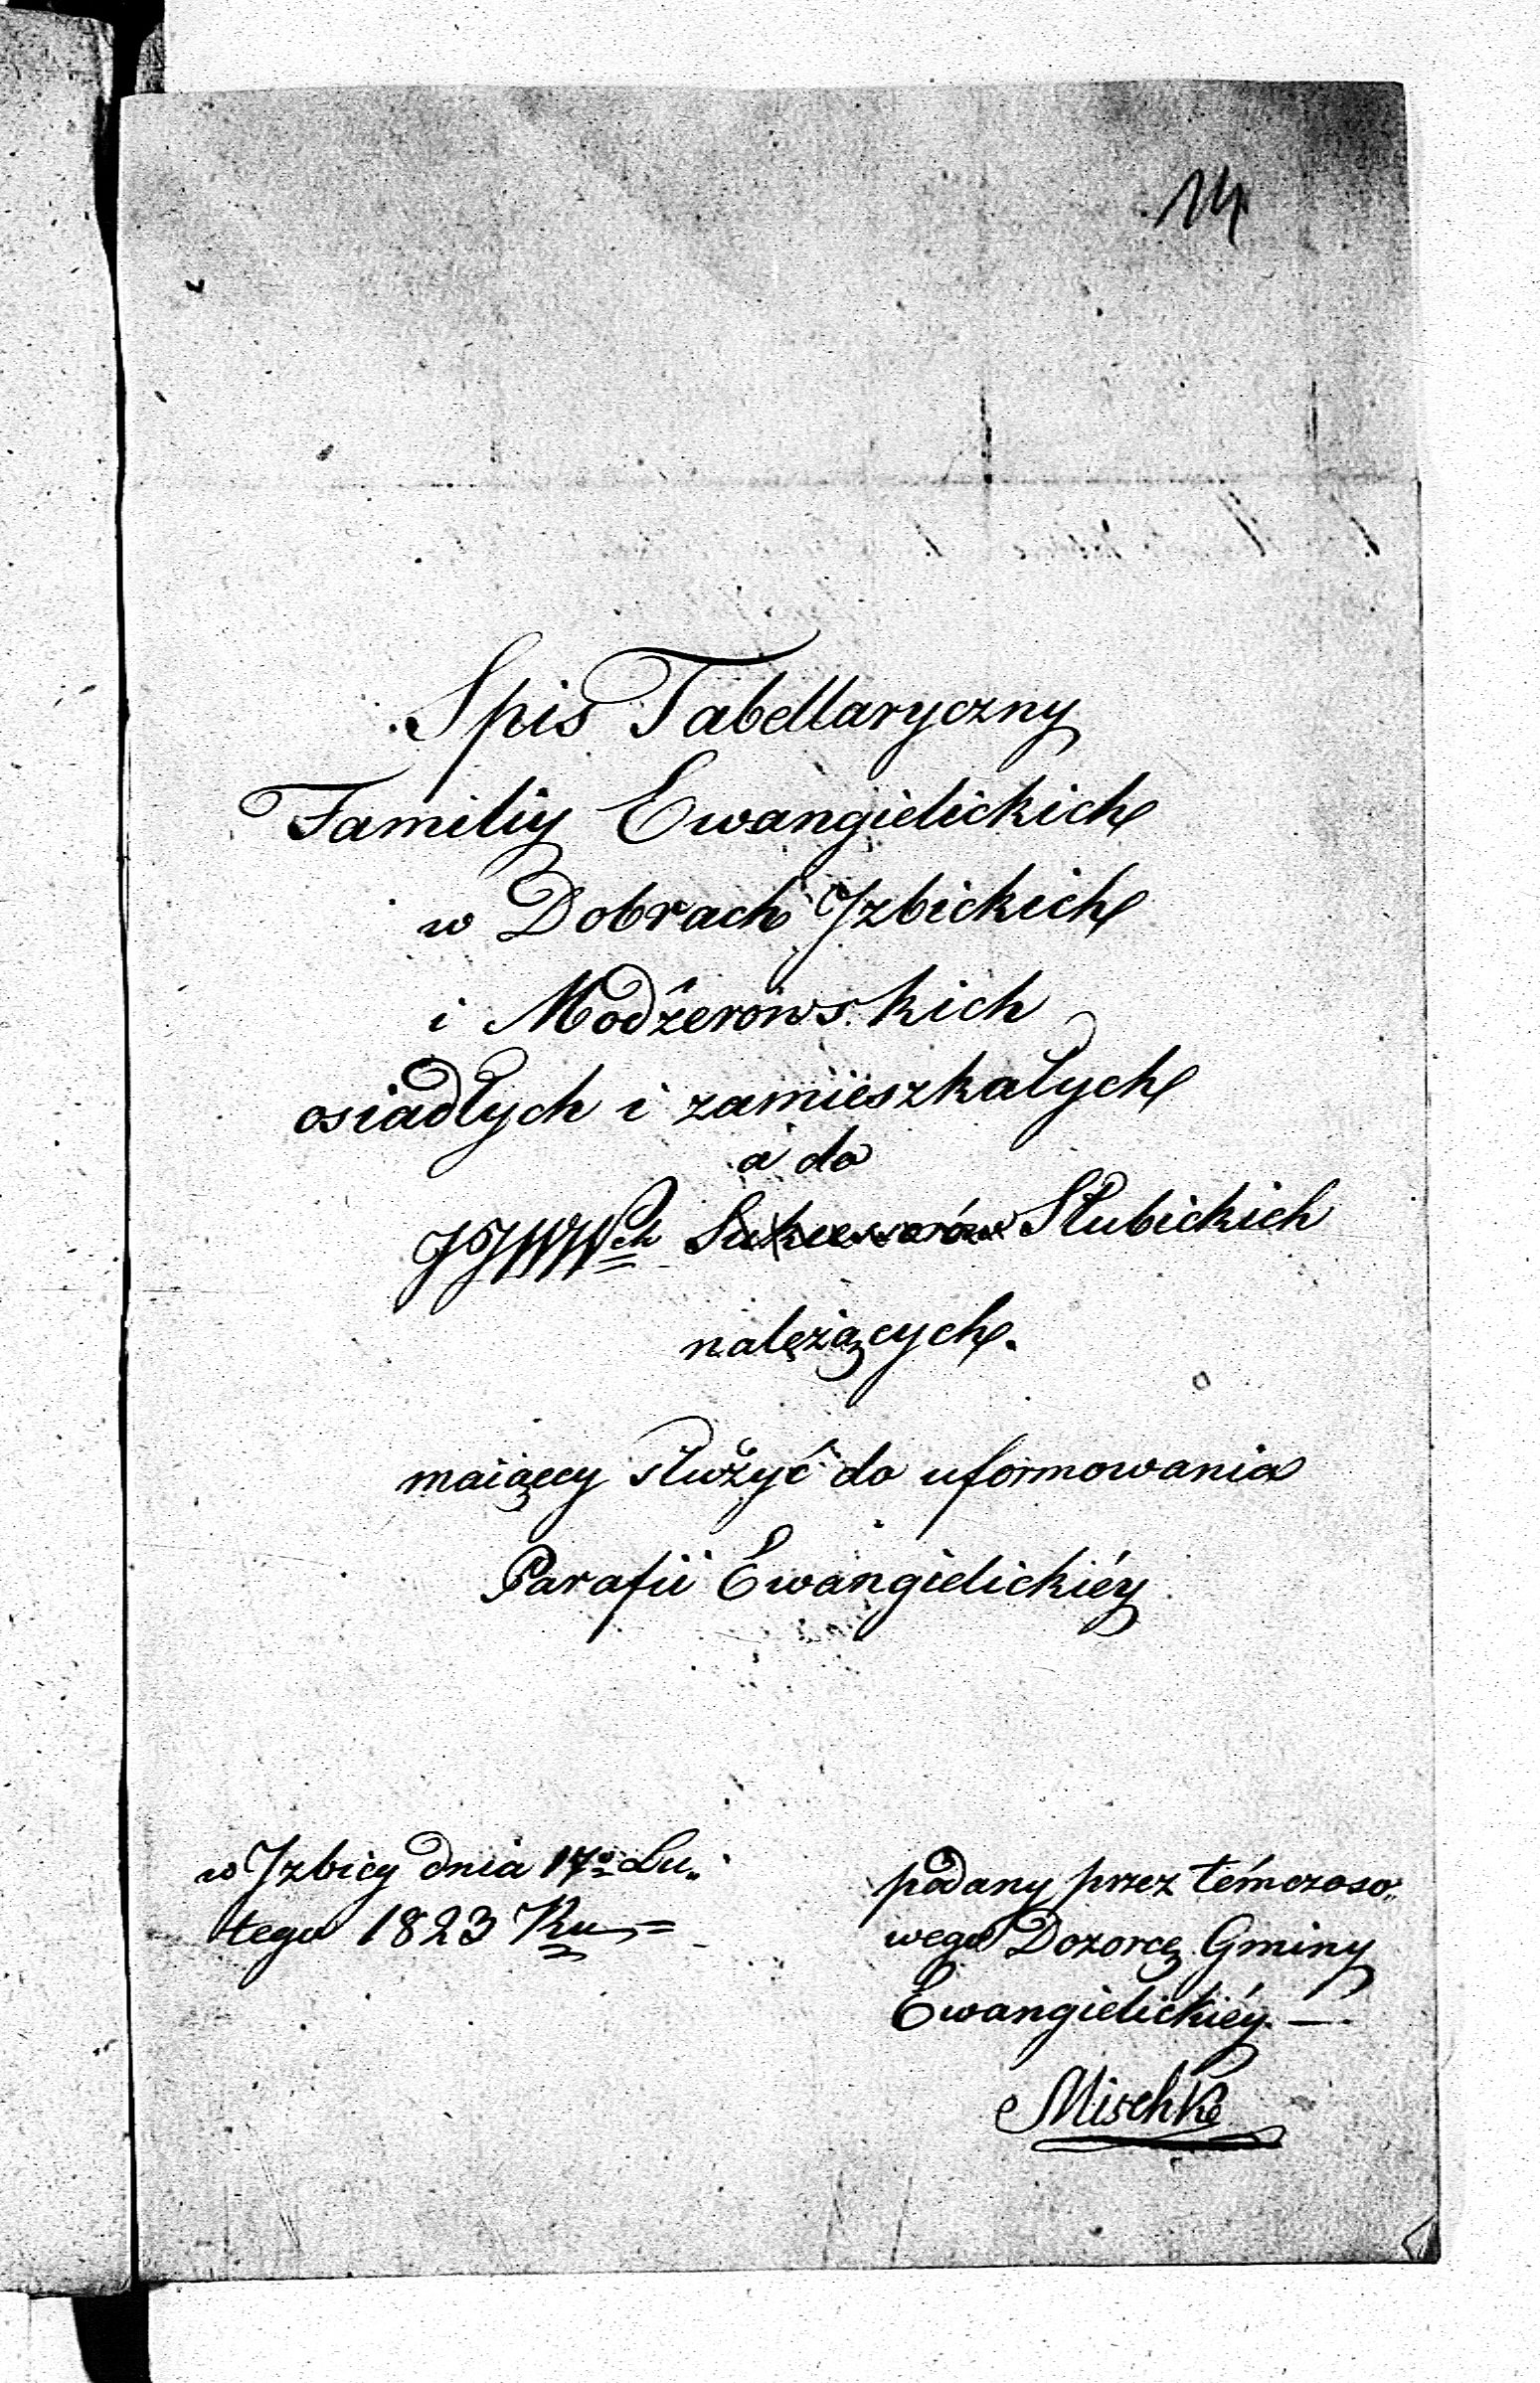 14
Spis Tabellaryczny
Familiy Ewangielickich
w Dobrach Izbickich
i Modżerowskich
osiadłych i zamieszkałych
a do
JJWWch Sukcessorów Słubickich
należących.
maiący służyć do uformowania
Parafii Ewangielickiéy
w Izbicy dnia 17o Lu„
tego 1823 Ru=
podany przez témczaso„
wego Dozorcę Gminy
Ewangielickiéy. —
Mischke